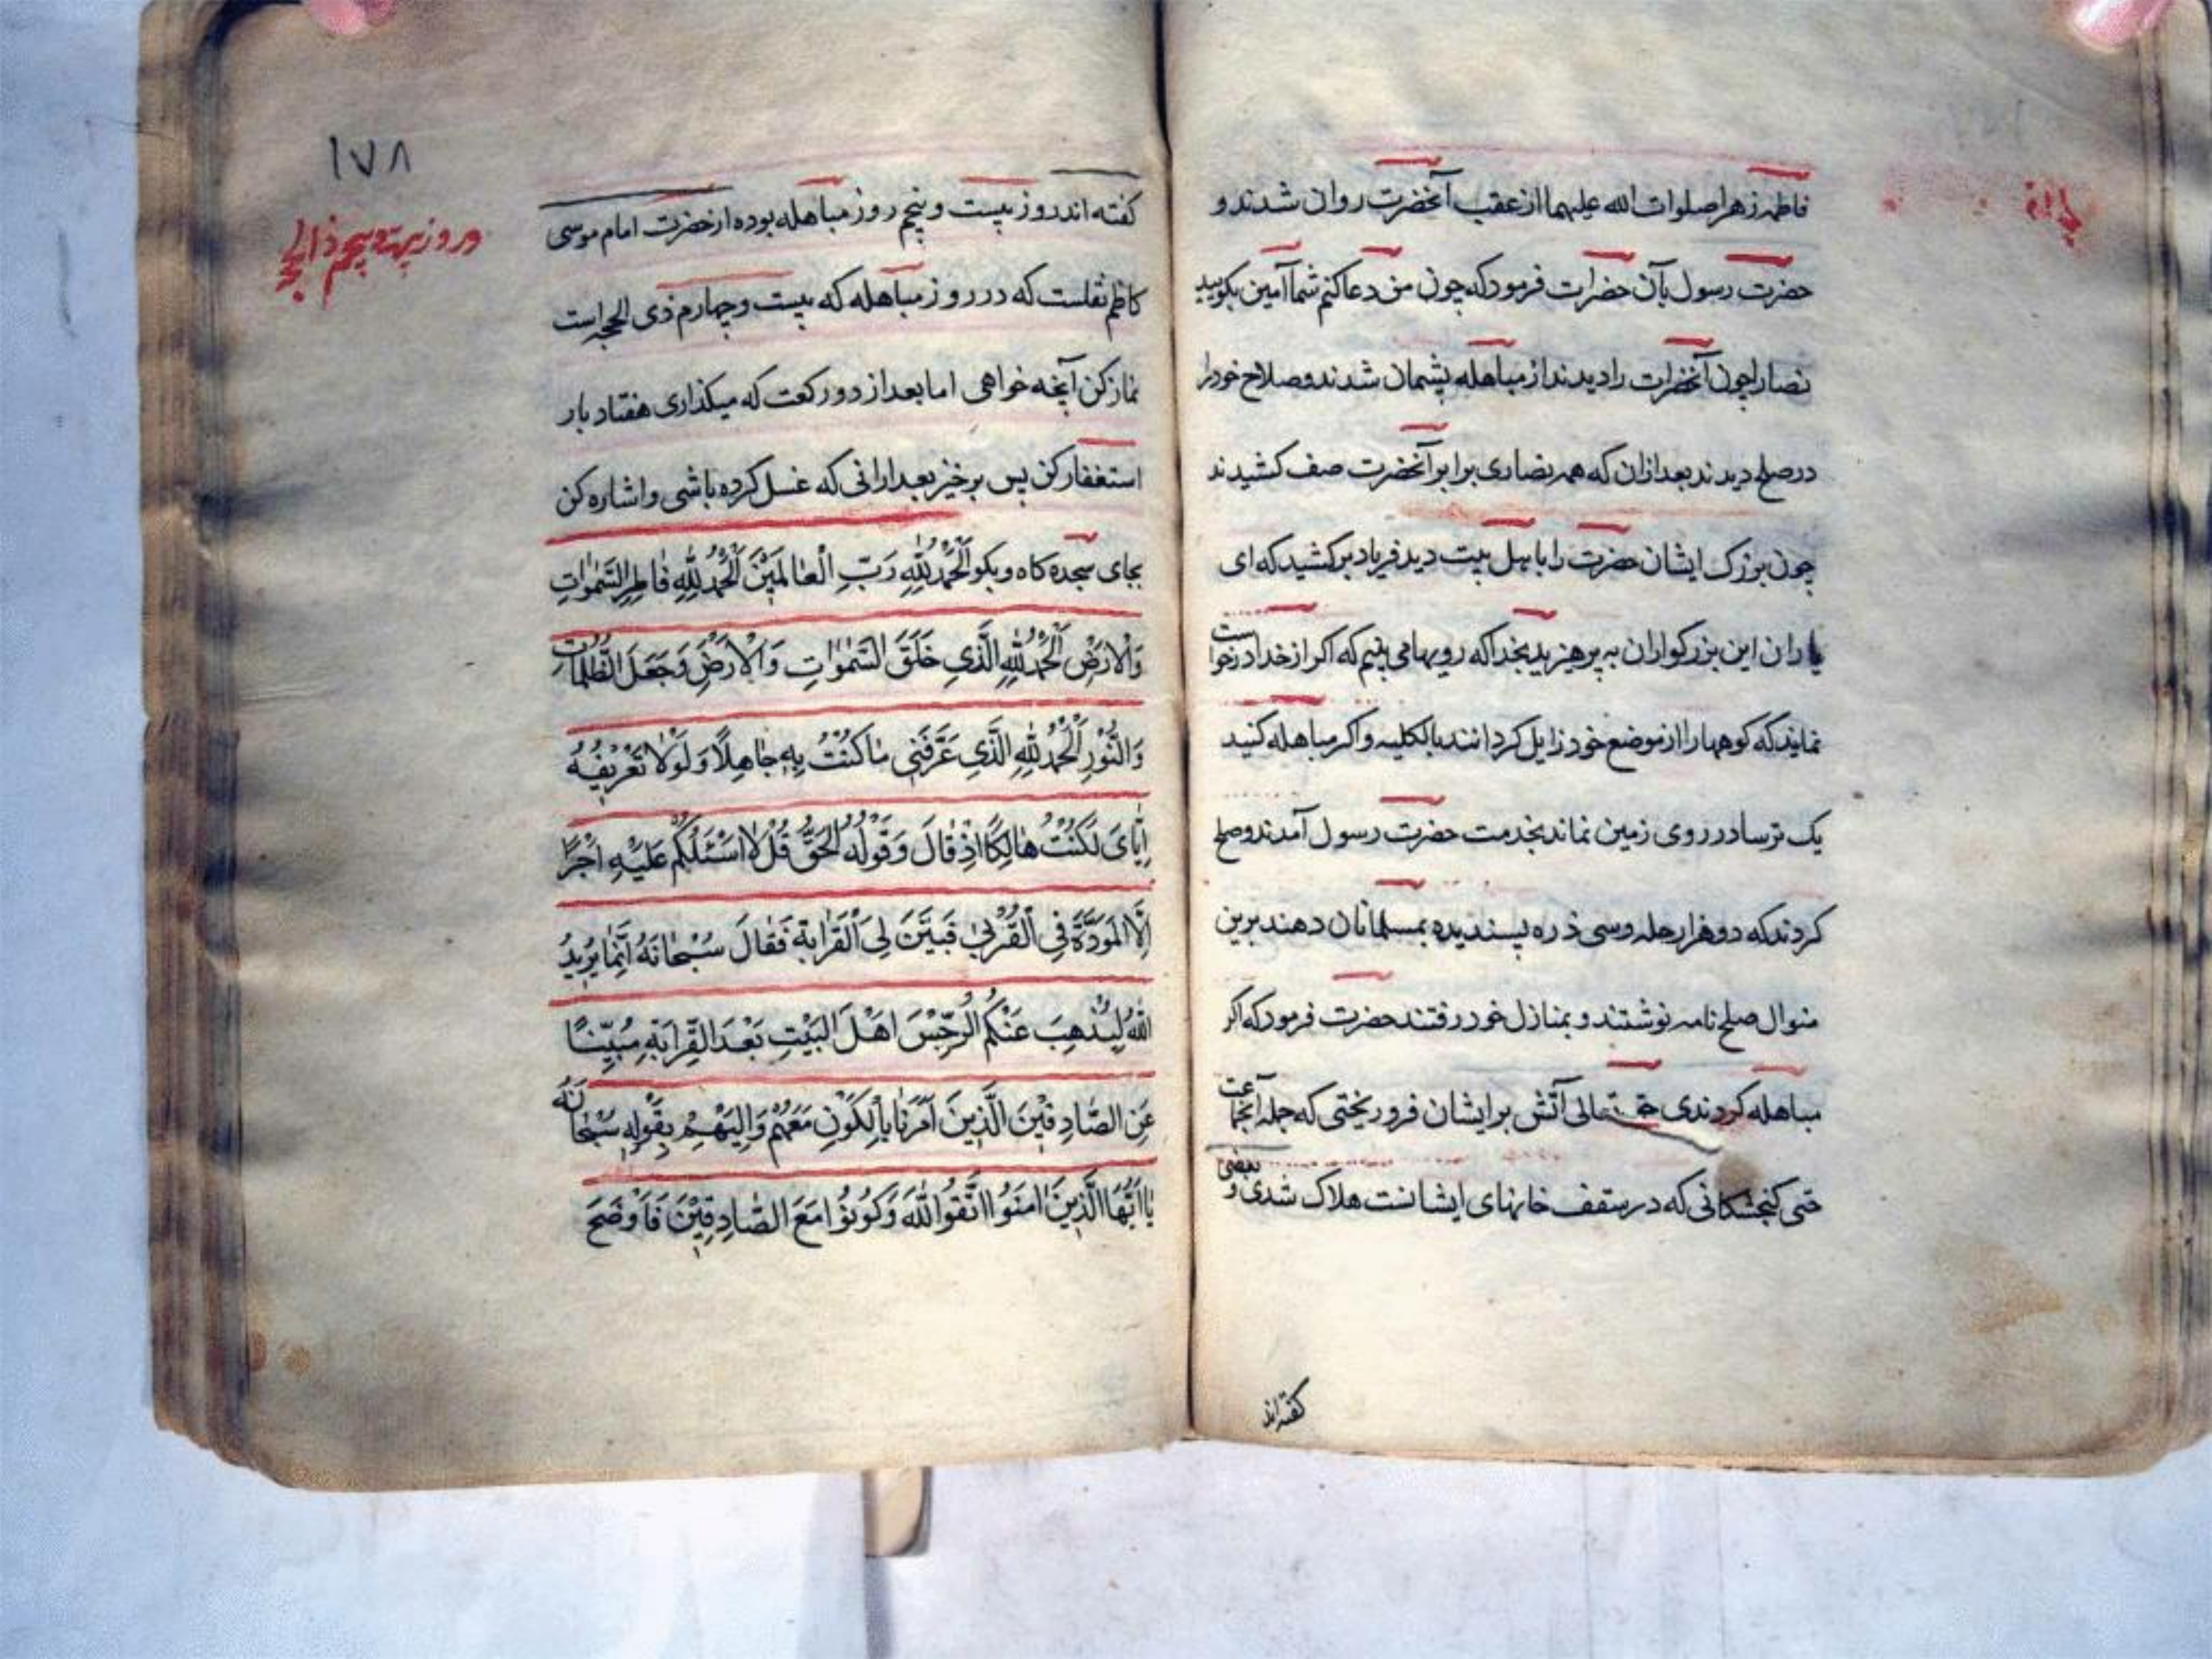 فاطمه زهرا صلوات الله علیهما از عقب آنحضرت روان شدند و
حضرت رسول بآن حضرات فرمود که چون من دعا کنم شما آمین بکویید
نصارا چون آنحضرات را دیدند از مباهله پشیمان شدند و صلاح خود را
در صلح دیدند بعد ازان که همه نصاری برابر آنحضرت صف کشیدند
چون بزرک ایشان حضرت را با هل بیت دید فریاد برکشید که ای
یاران این بزرکواران به پرهیزید بخدا که رویها می بینم که اکر از خدا درخواست
نمایند که کوهها را از موضع خود زایل کردانند بالکلیه و اکر مباهله کنید
یک ترسا در روی زمین نماند بخدمت حضرت رسول آمدند و صلح
کردند که دو هزار حله وسی ذره پسندیده بمسلمانان دهند برین
منوال صلح نامه نوشتند و بمنازل خود رفتند حضرت فرمود که اکر
مباهله کردندی حق تعالی آتش بر ایشان فرو ریختی که جمله آنجماعت
حتی کنجشکانی که در سقف خانهای ایشانست هلاک شدی و بعضی
کفته اند
۱۷۸
کفته اند روز بیست و پنجم روز مباهله بوده از حضرت امام موسی
کاظم نقلست که در روز مباهله که بیست و چهارم ذی الحجه است
نماز کن آنچه خواهی اما بعد از دو رکعت که میکذاری هفتاد بار
استغفار کن پس برخیز بعد ارانی که غسل کرده باشی و اشاره کن
بجای سجده کاه و بکو اَلْحَمْدُ لِلّٰهِ رَبِّ الْعٰالَمِیْنَ اَلْحَمْدُ لِلّٰهِ فٰاطِرِ السَّمٰوٰاتِ
وَالْاَرْضِ اَلْحَمْدُ لِلّٰهِ الَّذِی خَلَقَ السَّمٰوٰاتِ وَالْاَرْضَ وَجَعَلَ الظُّلُمٰاتِ
وَالنُّوْرَ اَلْحَمْدُ لِلّٰهِ الَّذِی عَرَّفَنِی مٰا کُنْتُ بِهِ جٰاهِلًا وَلَوْلٰا تَعْرِیْفُهُ
اِیّٰایَ لَکُنْتُ هٰالِکًا اِذْ قٰالَ وَقَوْلُهُ الْحَقُّ قُلْ لٰا اَسْئَلُکُمْ عَلَیْهِ اَجْرًا
اِلَّا الْمَوَدَّةَ فِی الْقُرْبٰی فَبَیَّنَ لِی الْقَرٰابَةَ فَقٰالَ سُبْحٰانَهُ اِنَّمٰا یُرِیدُ
اللّٰهُ لِیُذْهِبَ عَنْکُمُ الرِّجْسَ اَهْلَ الْبَیْتِ بَعْدَ الْقِرٰابَةِ مُبَیِّنًا
عَنِ الصّٰادِقِیْنَ الَّذِینَ اَمَرَنٰا بِالْکَوْنِ مَعَهُمْ وَاِلَیْهِمْ بِقَوْلِهِ سُبْحٰانَهُ
یٰا اَیُّهَا الَّذِینَ اٰمَنُوا اتَّقُوا اللّٰهَ وَکُونُوْا مَعَ الصّٰادِقِیْنَ فَاَوْضَحَ